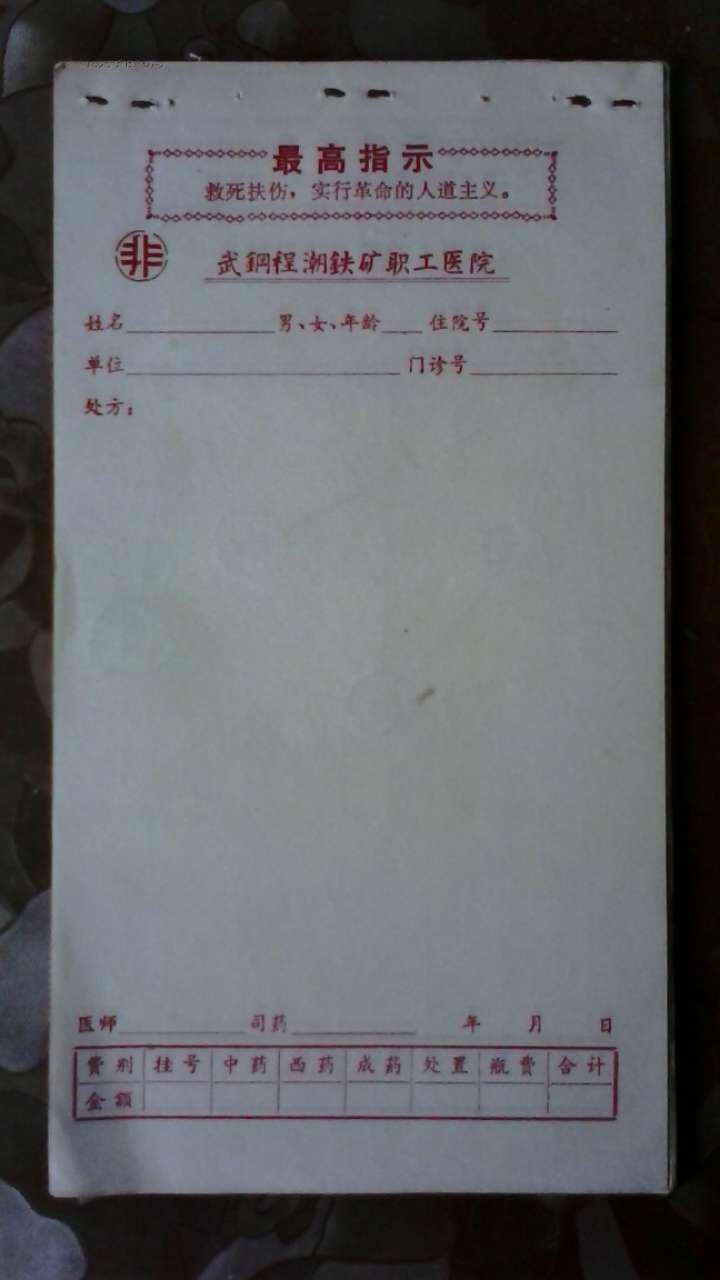 最高指示
救死扶伤，实行革命的人道主义。
非
武鋼程潮鉄矿职工医院
姓名 男、女、年龄 住院号
单位 门诊号
处方：
医师 司药 年 月 日
费别 挂号 中药 西药 成药 处置 瓶费 合计
金额